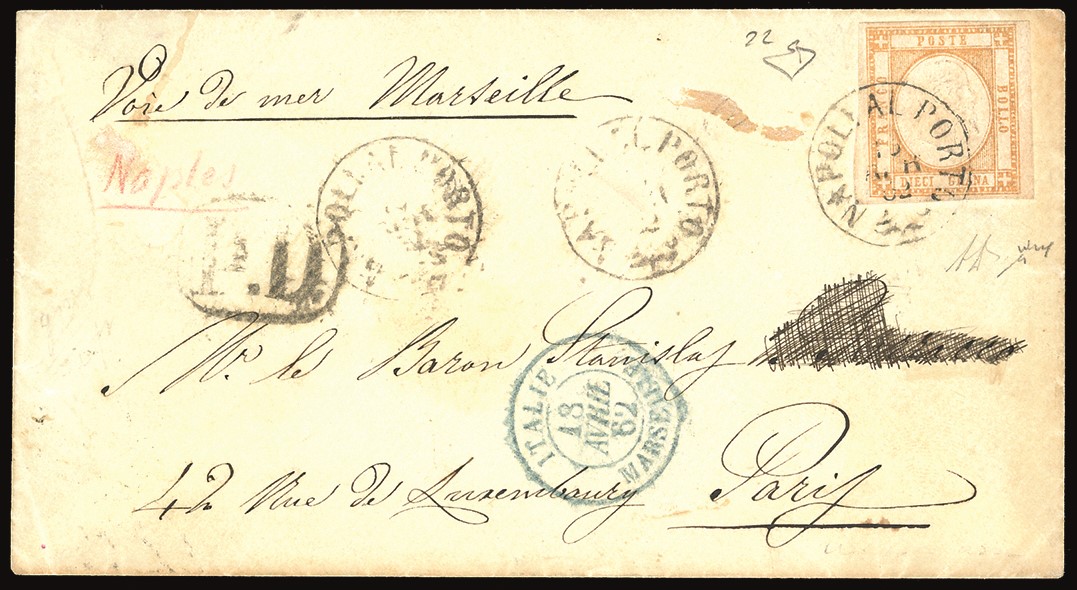 Voie de mer Marseille
22
POSTE
BOLLO
DIECI GRANA
NAPOLI AL PORTO
NAPOLI AL PORTO
NAPOLI AL PORTO
Naples
P.D.
Mr. le Baron Stanislas
ITALIE
18
AVRIL
62
MARSEILLE
42 Rue de Luxembourg Paris